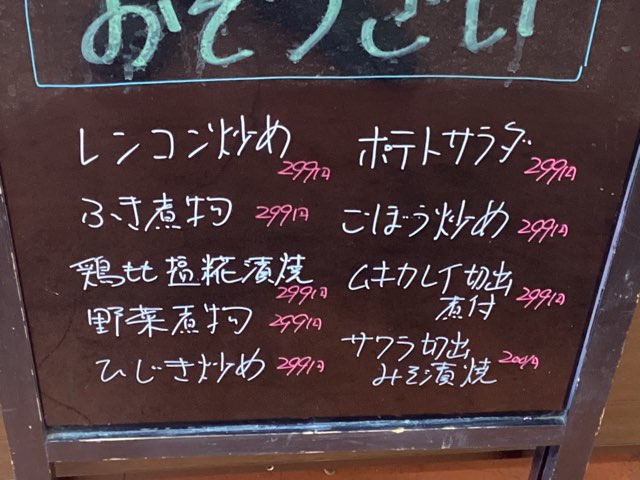 おそうざい
レンコン炒め
299円
ふき煮物 299円
鶏もも塩糀漬焼
299円
野菜煮物 299円
ひじき炒め 299円
ポテトサラダ
299円
ごぼう炒め 299円
ムキカレイ切出
煮付 299円
サワラ切出
みそ漬焼